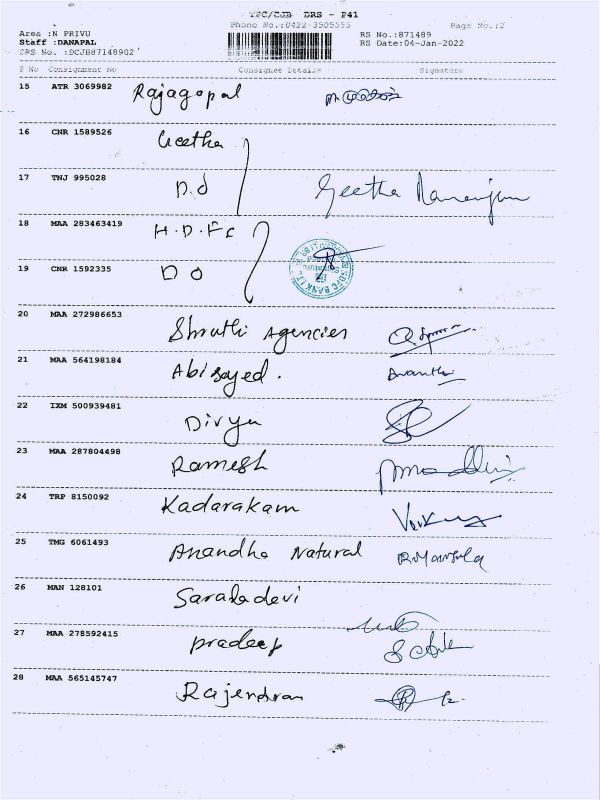 TPC/CJB DRS - P41
Phone No.:0422-3505595 Page No.:2
Area :N PRIVU RS No.:871489
Staff :DANAPAL RS Date:04-Jan-2022
DRS No. :DCJB871489Q2
S No Consignment No Consignee Details Signature
15 ATR 3069982 Rajagopal
16 CNR 1589526 Geetha
17 TNJ 995028 D.O Geetha
18 MAA 283463419 H.D.F.C
HDFC BANK LTD
19 CNR 1592335 D O
20 MAA 272986653 Shruthi Agencies
21 MAA 564198184 Abisayed.
22 IXM 500939481 Divya
23 MAA 287804498 Ramesh
24 TRP 8150092 Kadarakam
25 TMG 6061493 Anandha Natural
26 MAN 128101 Saradadevi
27 MAA 278592415 pradeep
28 MAA 565145747 Rajendran